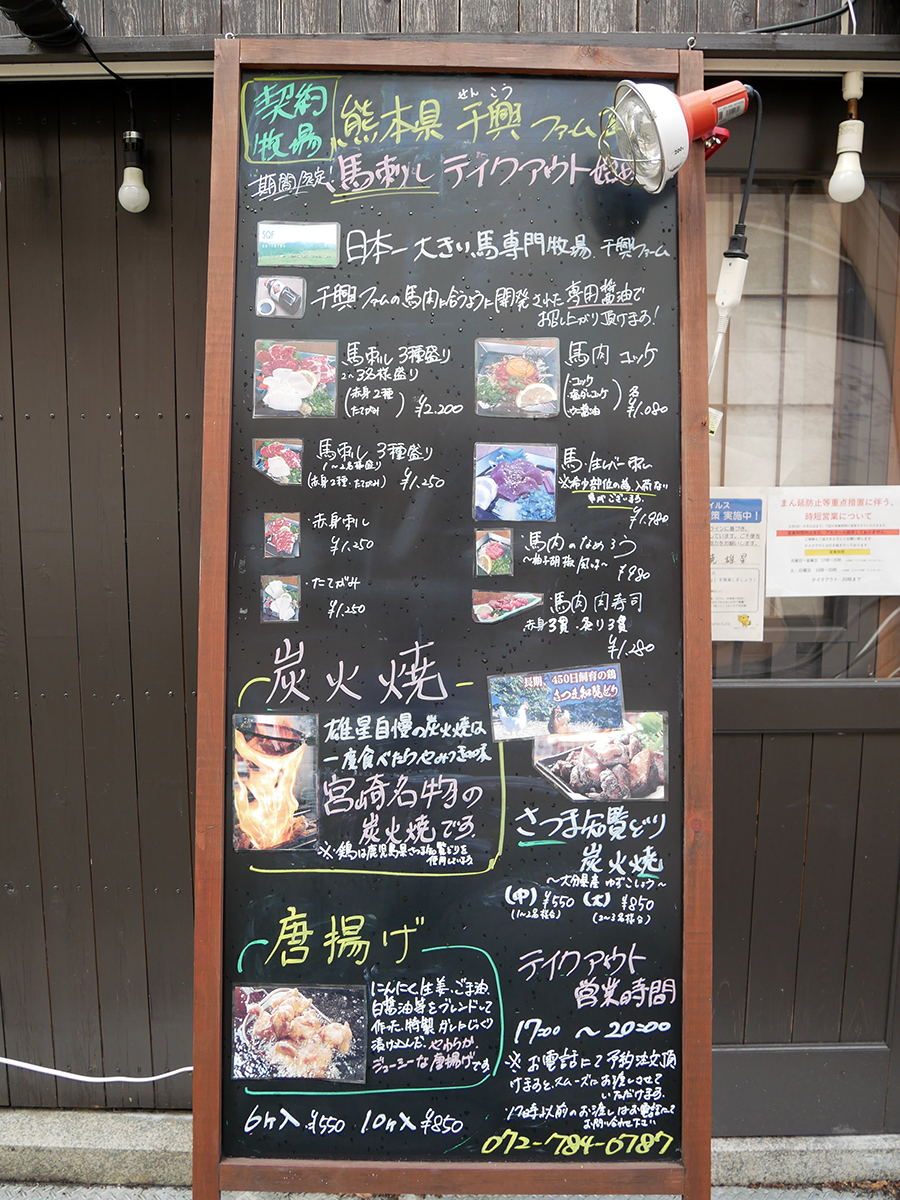 契約
牧場
熊本県 千興 ファーム
せん こう
期間限定! 馬刺し テイクアウト
SQF
日本一大きい馬専門牧場 千興ファーム
千興ファームの馬肉に合うように開発された専用醤油で
お召し上がり頂けます!
馬刺し 3種盛り
2〜3名様盛り
(赤身2種
たてがみ) ¥2.200
馬肉 ユッケ
(・ユッケ
・塩ダレユッケ
) 各
¥1.080
馬刺し 3種盛り
1〜2名様盛り
(赤身2種・たてがみ) ¥1.250
馬・生レバー刺し
※希少部位の為、入荷ない
事もございます。
¥1.980
・赤身刺し
¥1.250
・馬肉のなめろう
〜柚子胡椒風味〜 ¥980
・たてがみ
¥1.250
・馬肉 肉寿司
赤身3貫・炙り3貫
¥1.280
炭火焼
雄星自慢の炭火焼は
一度食べたらやみつきの味
宮崎名物の
炭火焼です。
※鶏は鹿児島県さつま知覧どりを
使用しています
長期、450日飼育の鶏
さつま知覧どり
さつま知覧どり
炭火焼
〜大分県産 ゆずこしょう〜
(中) ¥550 (大) ¥850
(1〜2名様台) (2〜3名様台)
唐揚げ
にんにく、生姜、ごま油、
白醤油等をブレンドして
作った、特製ダレにじっくり
漬け込んだ、やわらか
ジューシーな唐揚げです。
6ヶ入 ¥550 10ヶ入 ¥850
テイクアウト
営業時間
17:00 〜 20:00
※お電話にて予約注文頂
けますと、スムーズにお渡しさせて
いただけます。
・17時以前のお渡しはお電話にて
お問い合わせ下さい
072-784-0787
イルス
策 実施中!
まん延防止等重点措置に伴う、
時短営業について
営業時間
テイクアウト 20時まで